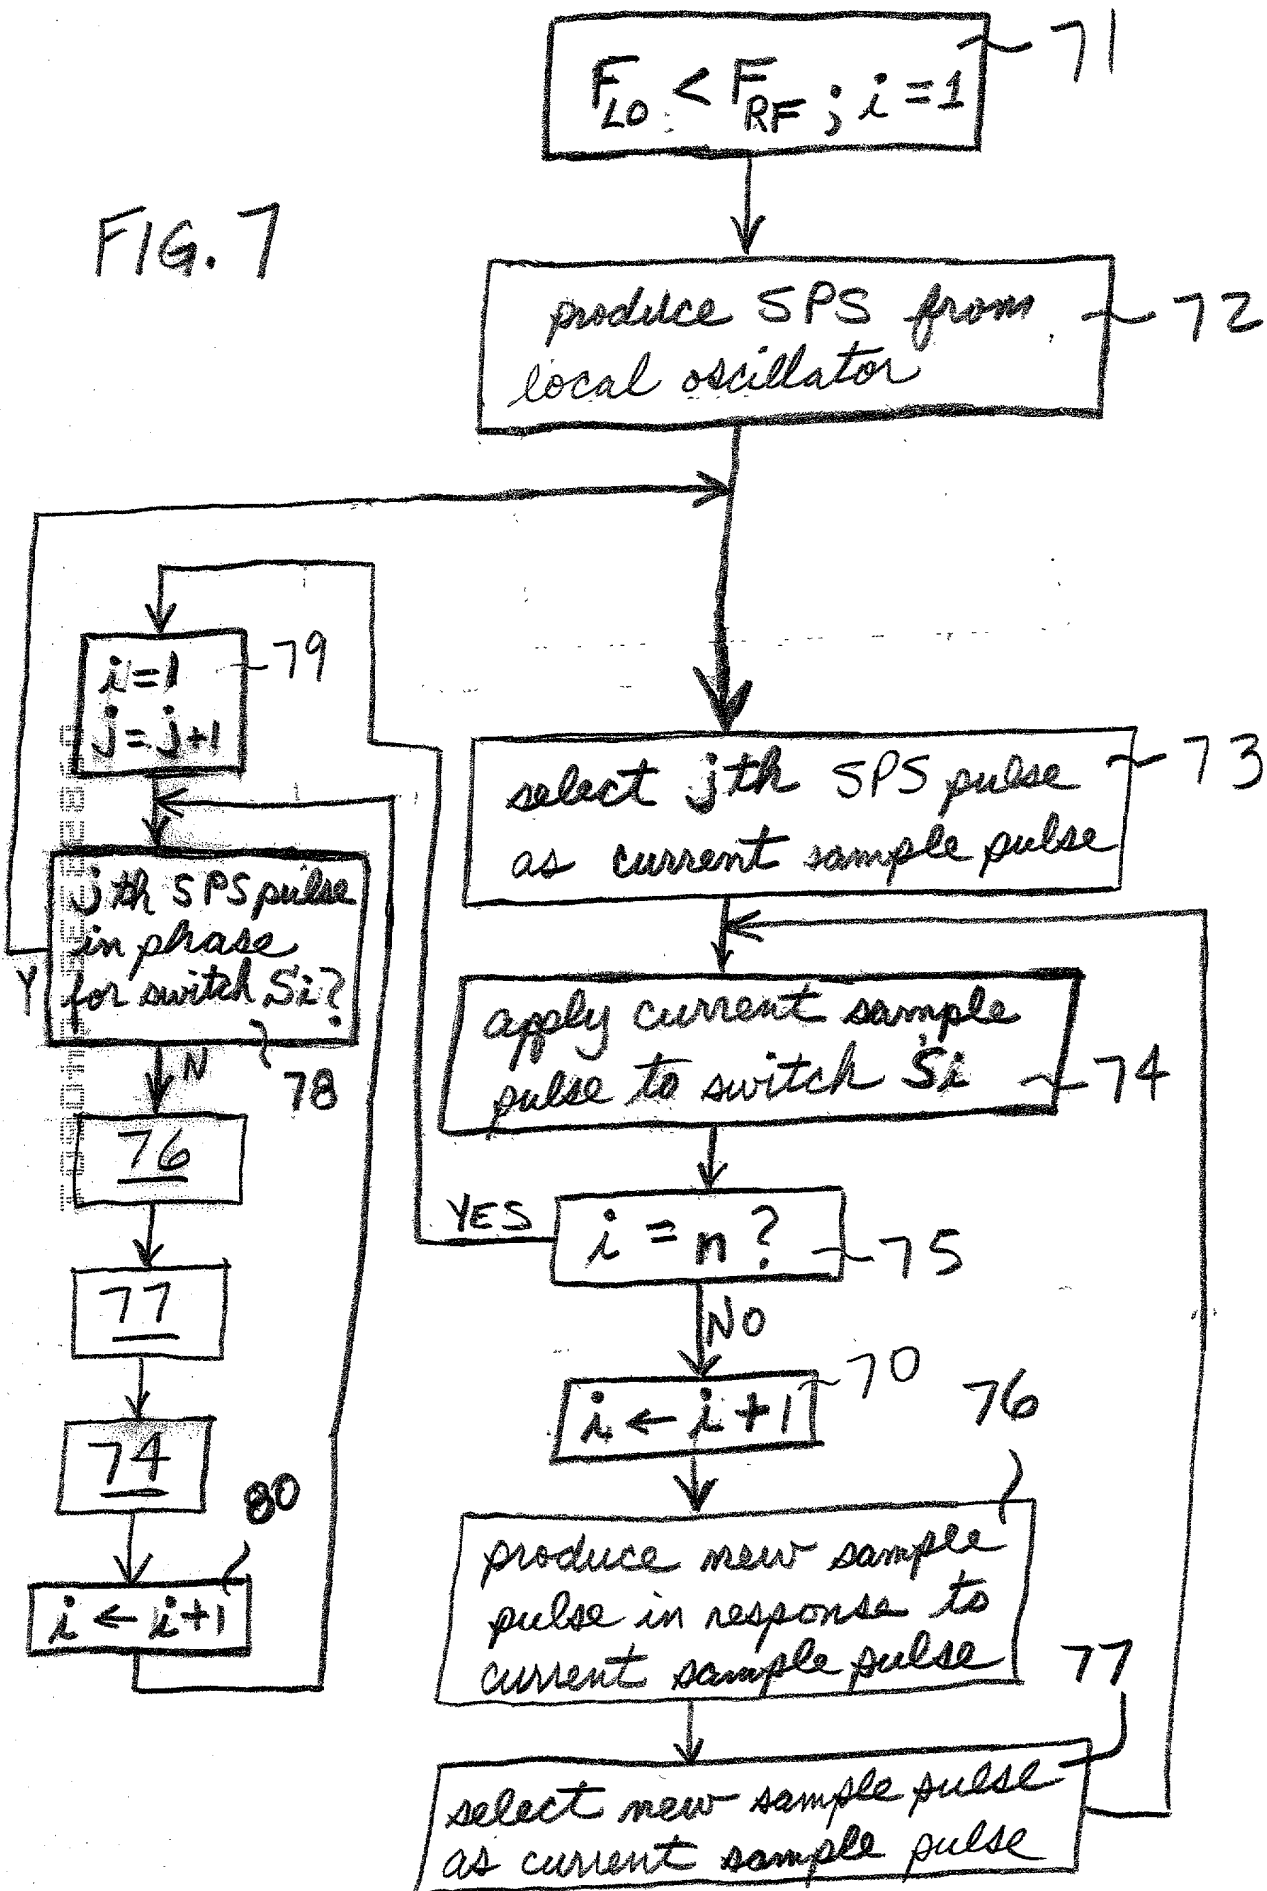 F_LO < F_RF ; i = 1
71
FIG. 7
produce SPS from
local oscillator
72
i = 1
j = j + 1
79
select jth SPS pulse
as current sample pulse
73
jth SPS pulse
in phase
for switch Si?
Y
N
78
apply current sample
pulse to switch Si
74
76
YES
i = n ?
75
NO
77
i ← i + 1
70
74
80
i ← i + 1
76
produce new sample
pulse in response to
current sample pulse
77
select new sample pulse
as current sample pulse